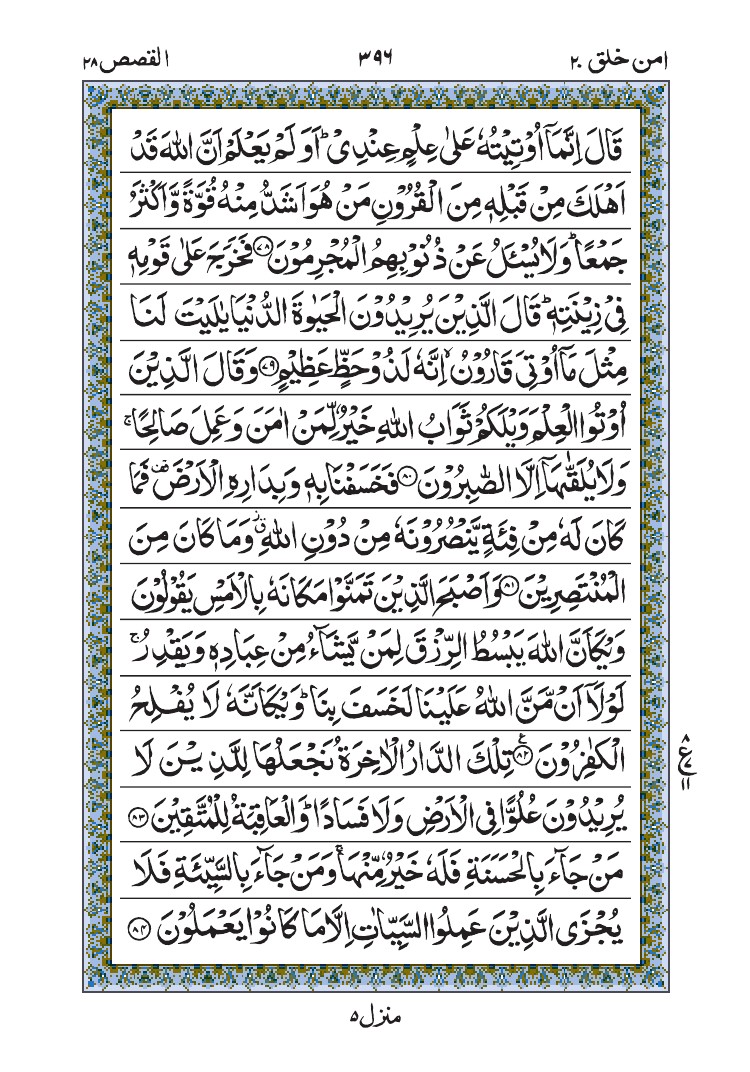 امن خلق ۲۰ ۳۹۶ القصص ۲۸
قَالَ اِنَّمَاۤ اُوْتِیْتُهٗ عَلٰی عِلْمٍ عِنْدِیْ ؕ اَوَ لَمْ یَعْلَمْ اَنَّ اللّٰهَ قَدْ
اَهْلَكَ مِنْ قَبْلِهٖ مِنَ الْقُرُوْنِ مَنْ هُوَ اَشَدُّ مِنْهُ قُوَّةً وَّ اَكْثَرُ
جَمْعًا ؕ وَ لَا یُسْـَٔلُ عَنْ ذُنُوْبِهِمُ الْمُجْرِمُوْنَ ﴿۷۸﴾ فَخَرَجَ عَلٰی قَوْمِهٖ
فِیْ زِیْنَتِهٖ ؕ قَالَ الَّذِیْنَ یُرِیْدُوْنَ الْحَیٰوةَ الدُّنْیَا یٰلَیْتَ لَنَا
مِثْلَ مَاۤ اُوْتِیَ قَارُوْنُ ۙ اِنَّهٗ لَذُوْ حَظٍّ عَظِیْمٍ ﴿۷۹﴾ وَ قَالَ الَّذِیْنَ
اُوْتُوا الْعِلْمَ وَیْلَكُمْ ثَوَابُ اللّٰهِ خَیْرٌ لِّمَنْ اٰمَنَ وَ عَمِلَ صَالِحًا ۚ
وَ لَا یُلَقّٰىهَاۤ اِلَّا الصّٰبِرُوْنَ ﴿۸۰﴾ فَخَسَفْنَا بِهٖ وَ بِدَارِهِ الْاَرْضَ ۫ فَمَا
كَانَ لَهٗ مِنْ فِئَةٍ یَّنْصُرُوْنَهٗ مِنْ دُوْنِ اللّٰهِ ٭ۗ وَ مَا كَانَ مِنَ
الْمُنْتَصِرِیْنَ ﴿۸۱﴾ وَ اَصْبَحَ الَّذِیْنَ تَمَنَّوْا مَكَانَهٗ بِالْاَمْسِ یَقُوْلُوْنَ
وَیْكَاَنَّ اللّٰهَ یَبْسُطُ الرِّزْقَ لِمَنْ یَّشَآءُ مِنْ عِبَادِهٖ وَ یَقْدِرُ ۚ
لَوْ لَاۤ اَنْ مَّنَّ اللّٰهُ عَلَیْنَا لَخَسَفَ بِنَا ؕ وَیْكَاَنَّهٗ لَا یُفْلِحُ
الْكٰفِرُوْنَ ﴿۸۲﴾ تِلْكَ الدَّارُ الْاٰخِرَةُ نَجْعَلُهَا لِلَّذِیْنَ لَا
ع
۱۱
یُرِیْدُوْنَ عُلُوًّا فِی الْاَرْضِ وَ لَا فَسَادًا ؕ وَ الْعَاقِبَةُ لِلْمُتَّقِیْنَ ﴿۸۳﴾
مَنْ جَآءَ بِالْحَسَنَةِ فَلَهٗ خَیْرٌ مِّنْهَا ۚ وَ مَنْ جَآءَ بِالسَّیِّئَةِ فَلَا
یُجْزَی الَّذِیْنَ عَمِلُوا السَّیِّاٰتِ اِلَّا مَا كَانُوْا یَعْمَلُوْنَ ﴿۸۴﴾
منزل ۵